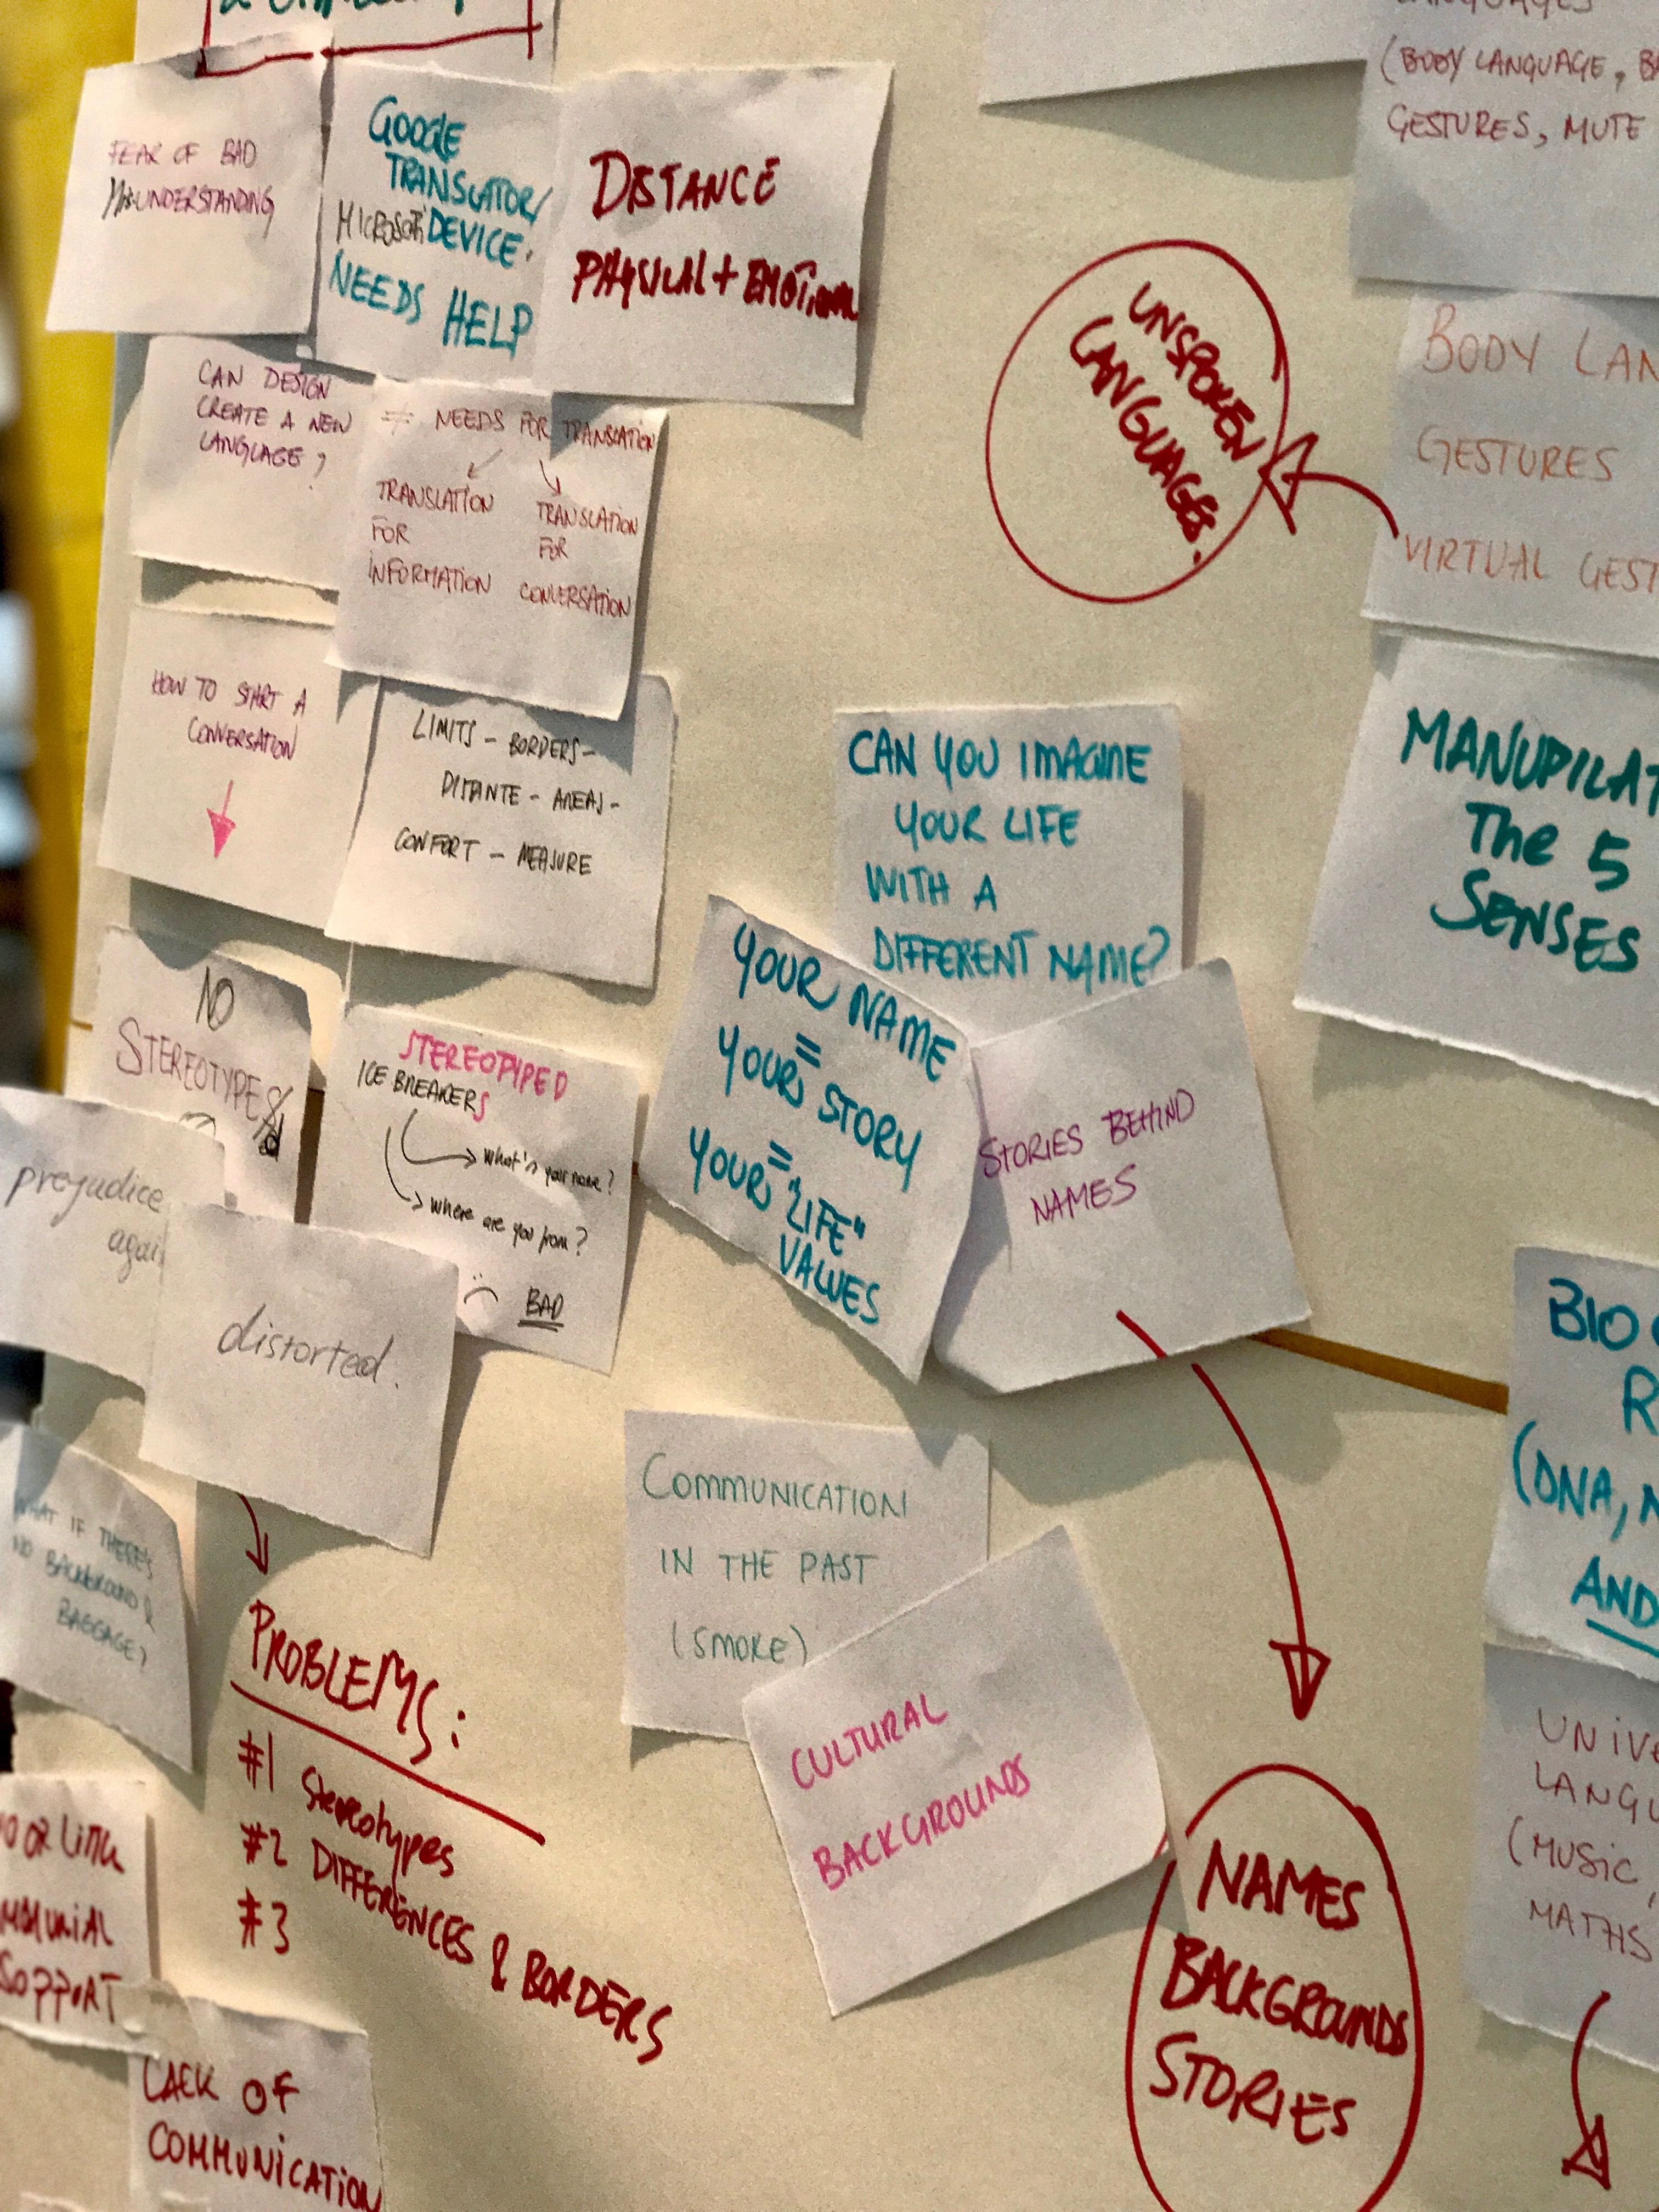 FEAR OF BAD
MISUNDERSTANDING
GOOGLE
TRANSLATOR/
MICROSOFT DEVICE.
NEEDS HELP
DISTANCE
PHYSICAL + EMOTIONAL
(BODY LANGUAGE,
GESTURES, MUTE
UNSPOKEN
LANGUAGES.
BODY LAN
GESTURES
VIRTUAL GEST
CAN DESIGN
CREATE A NEW
LANGUAGE?
≠ NEEDS FOR TRANSLATION
TRANSLATION
FOR
INFORMATION
TRANSLATION
FOR
CONVERSATION
HOW TO START A
CONVERSATION
LIMITS - BORDERS -
DISTANTE - AREAS -
CONFORT - MEASURE
CAN YOU IMAGINE
YOUR LIFE
WITH A
DIFFERENT NAME?
MANUPILAT
The 5
SENSES
YOUR NAME
=
YOUR STORY
=
YOUR "LIFE"
VALUES
STORIES BEHIND
NAMES
NO
STEREOTYPES
STEREOTYPED
ICE BREAKERS
what's your name?
where are you from?
BAD
prejudice
again
distorted.
WHAT IF THERE'S
NO BACKGROUND &
BAGGAGE?
COMMUNICATION
IN THE PAST
(SMOKE)
CULTURAL
BACKGROUNDS
BIO
R
(DNA,
AND
UNIVE
LANGU
(MUSIC,
MATHS
PROBLEMS:
#1 Stereotypes
#2 DIFFERENCES & BORDERS
#3
NAMES
BACKGROUNDS
STORIES
OR LITTLE
SOPPORT
LACK OF
COMMUNICATION